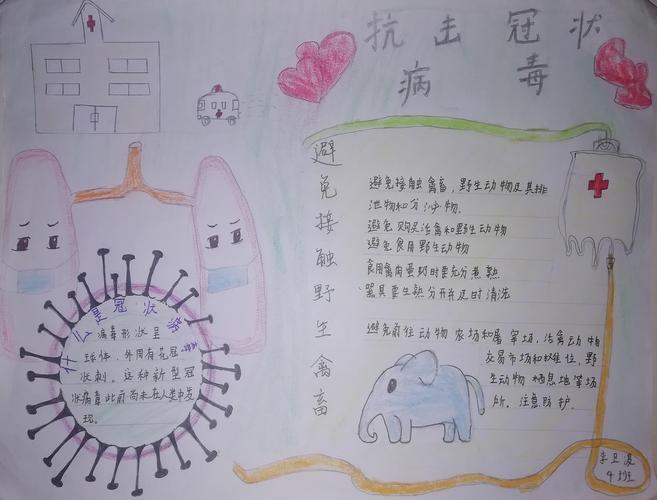 抗击冠状
病毒
避免接触野生禽畜
避免接触禽畜、野生动物及其排
泄物和分泌物.
避免购买活禽和野生动物
避免食用野生动物
食用禽肉蛋奶时要充分煮熟
器具要生熟分开并及时清洗
避免前往动物农场和屠宰场、活禽动物
交易市场和摊位、野
生动物栖息地等场
所。注意防护.
什么是冠状
病毒形状呈
球体、外周有花冠
状刺。这种新型冠
状病毒此前尚未在人类中发
现.
4班